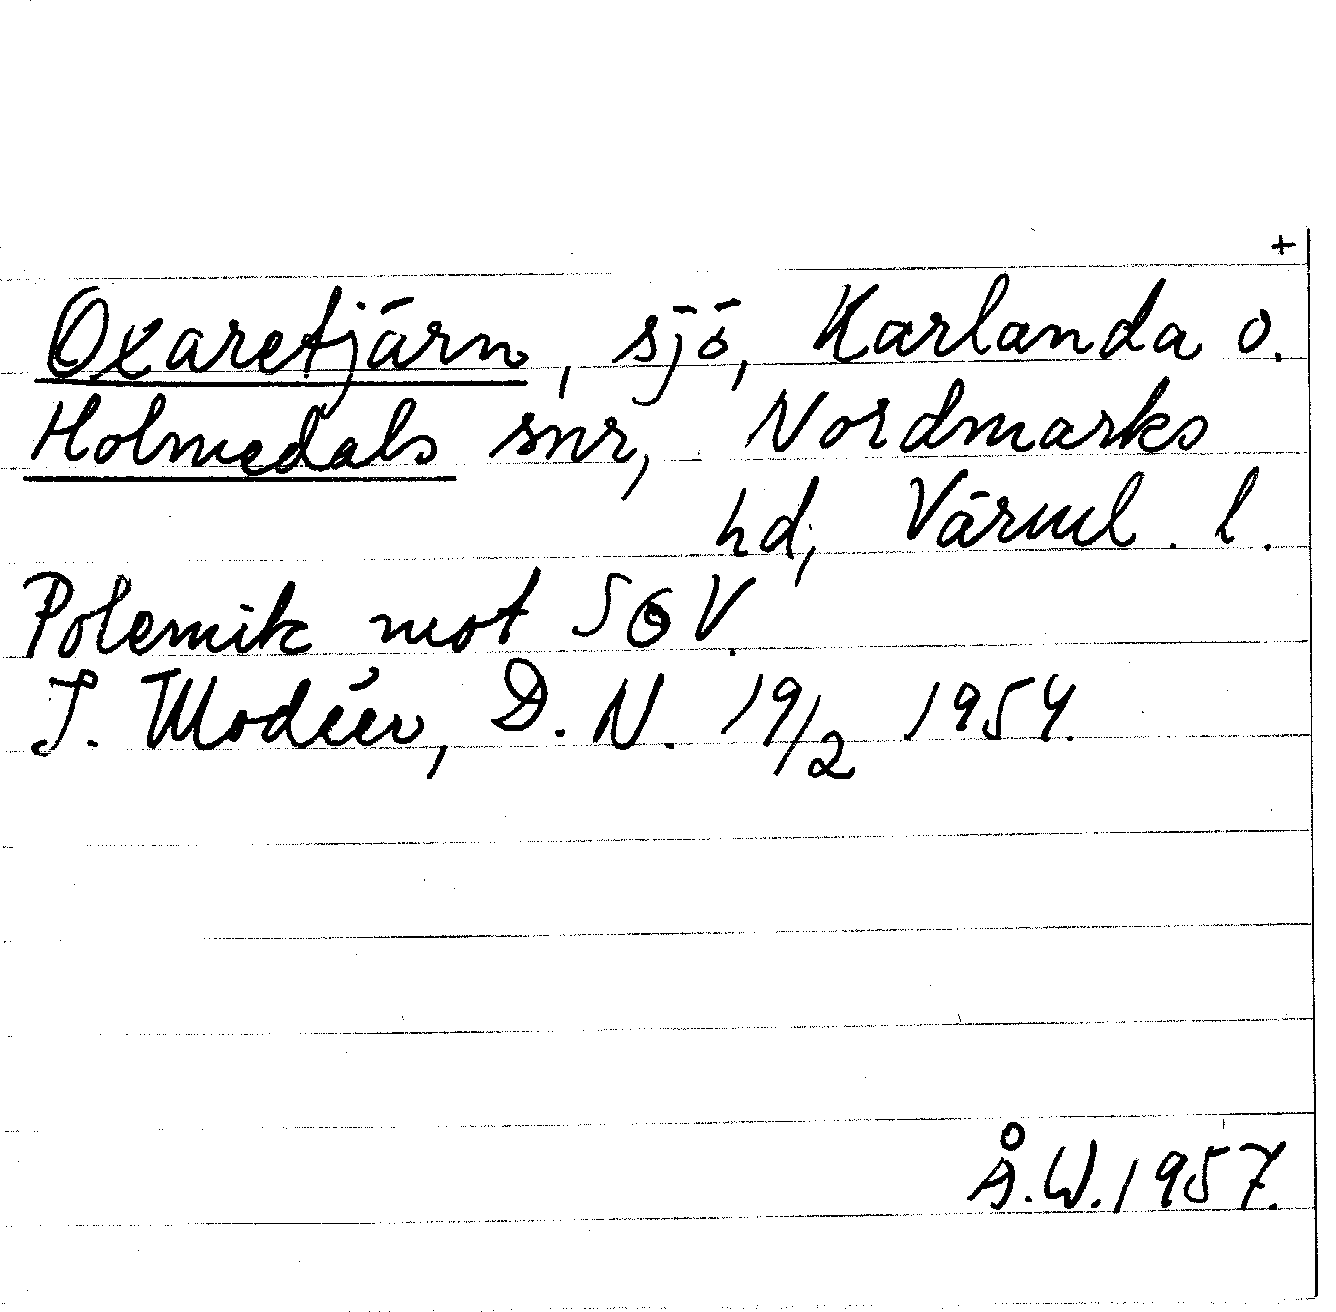 +
Oxaretjärn, sjö, Karlanda o.
Holmedals snr, Nordmarks
hd, Värml. l.
Polemik mot SOV.
I. Modéer, D. N. 19/2 1954.
Å.W. 1957.